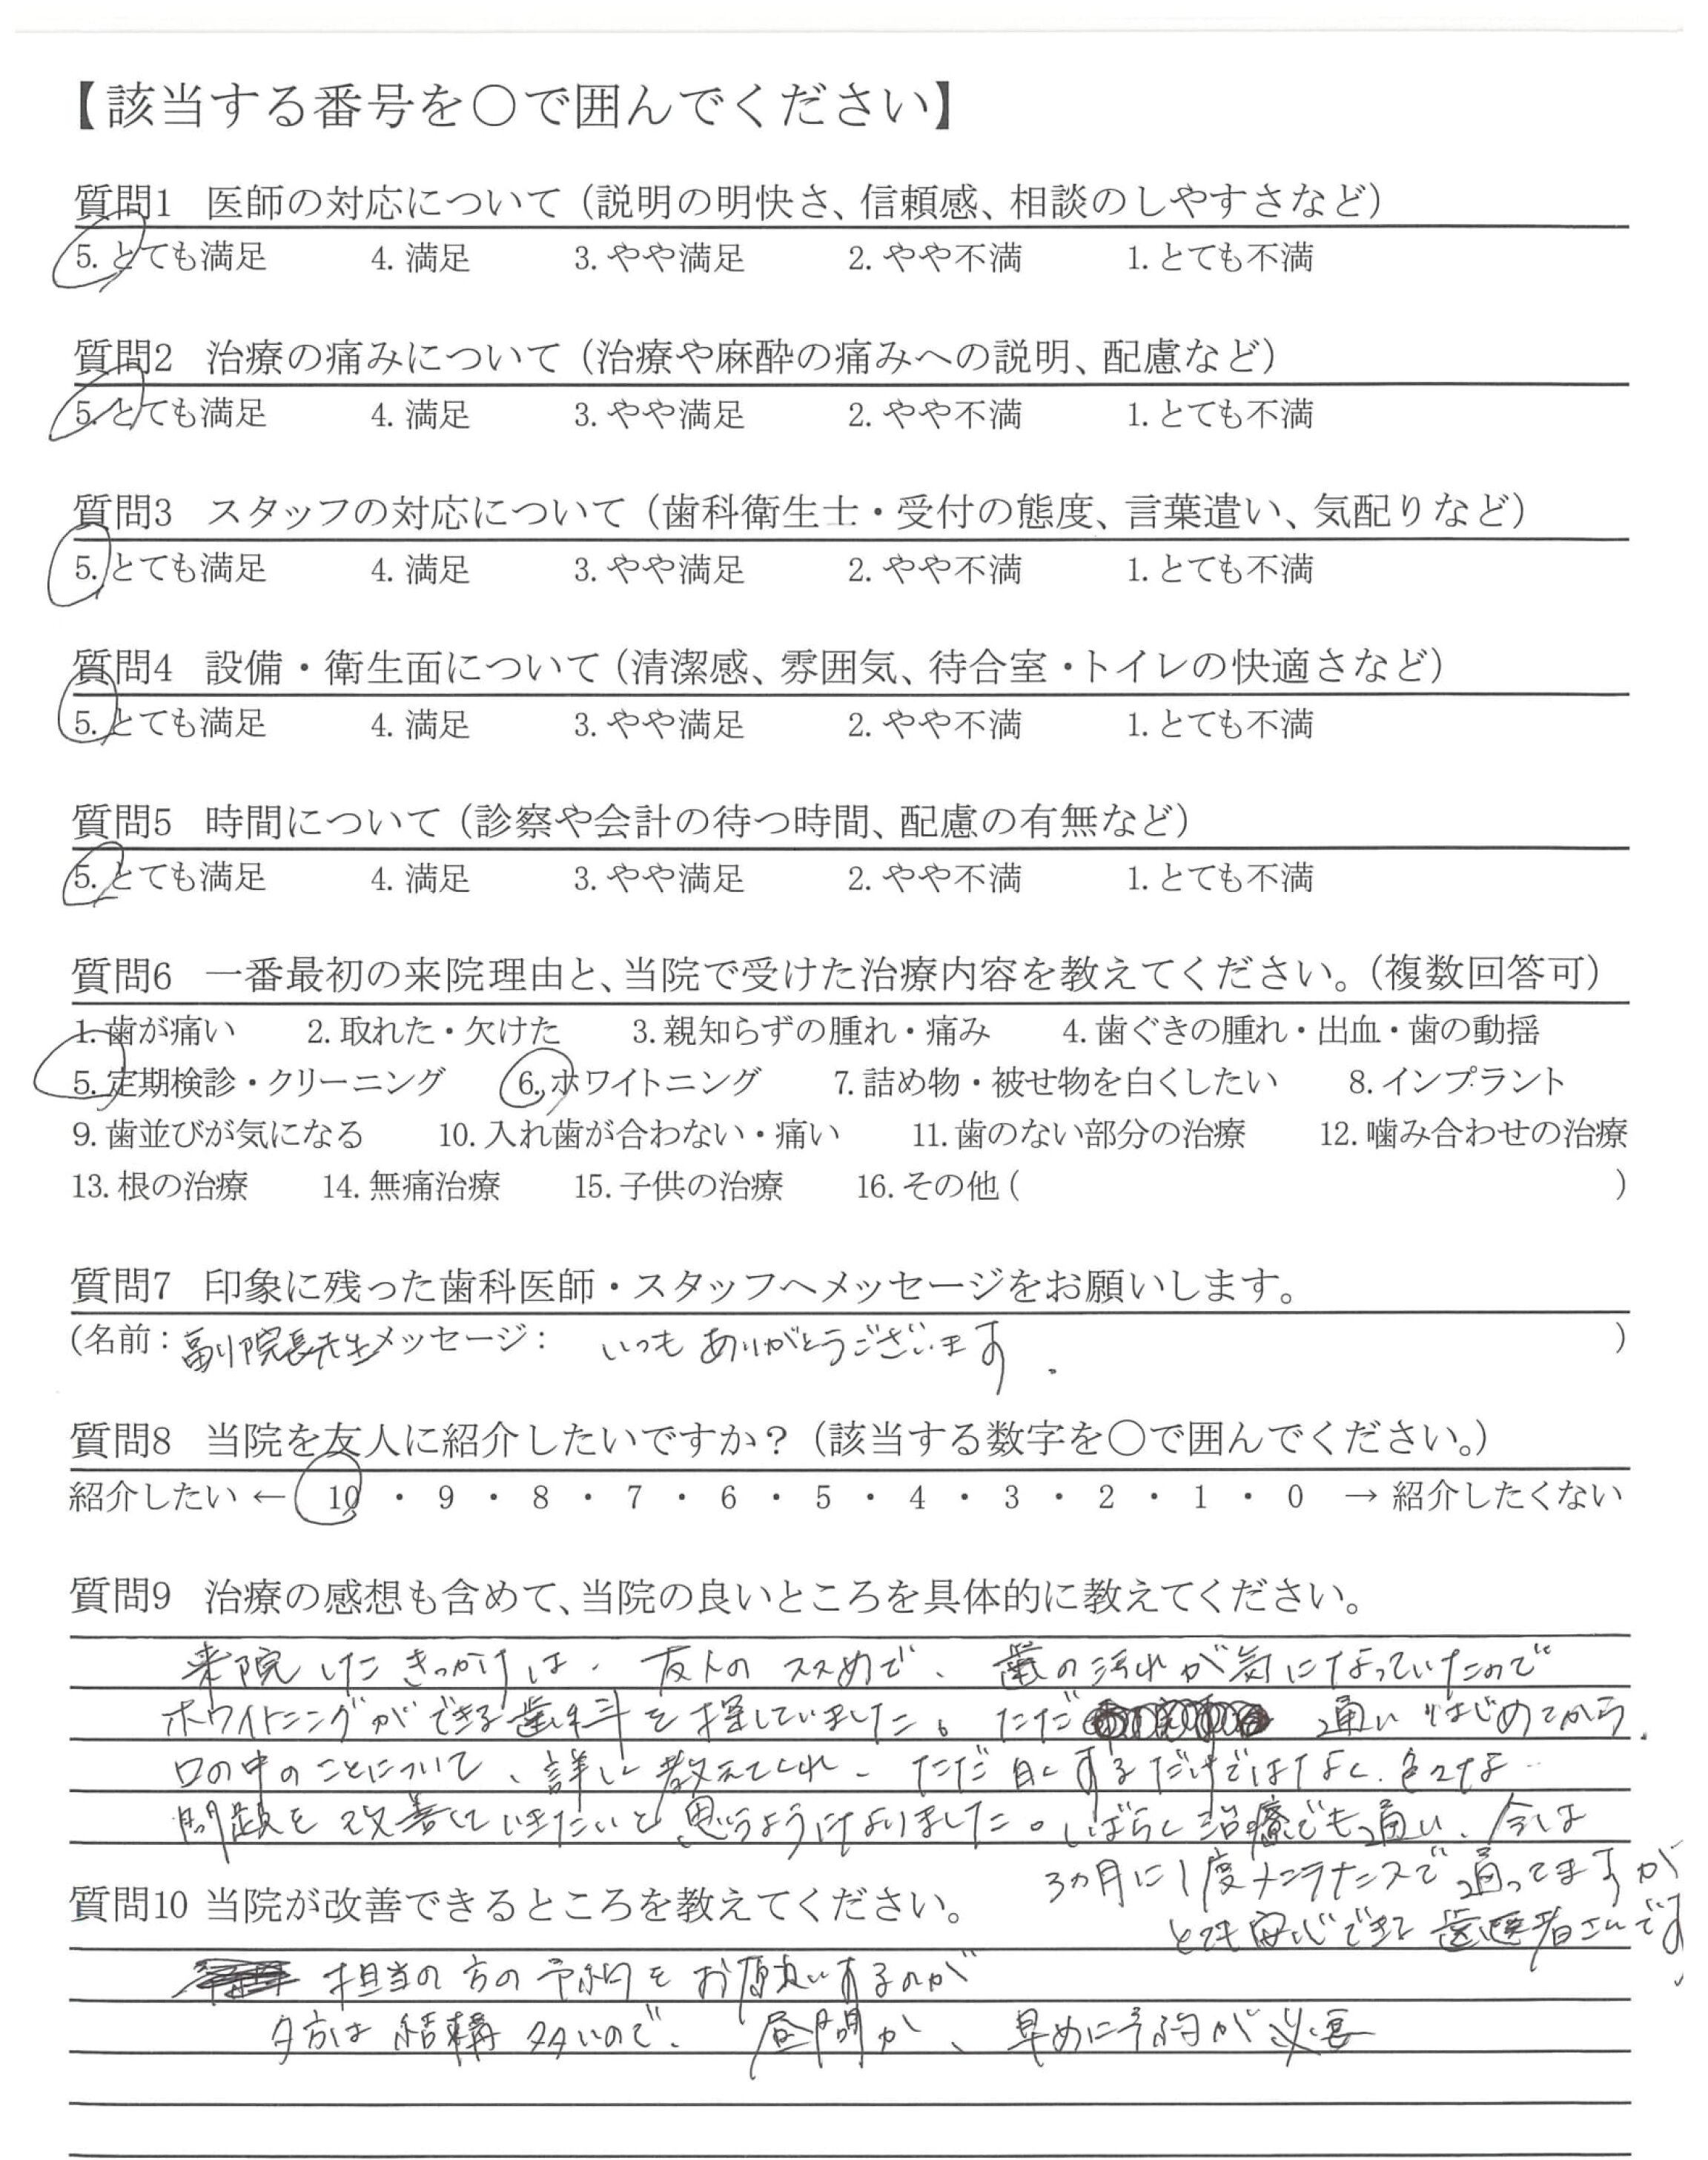 【該当する番号を○で囲んでください】
質問1 医師の対応について（説明の明快さ、信頼感、相談のしやすさなど）
5. とても満足 4. 満足 3. やや満足 2. やや不満 1. とても不満
質問2 治療の痛みについて（治療や麻酔の痛みへの説明、配慮など）
5. とても満足 4. 満足 3. やや満足 2. やや不満 1. とても不満
質問3 スタッフの対応について（歯科衛生士・受付の態度、言葉遣い、気配りなど）
5. とても満足 4. 満足 3. やや満足 2. やや不満 1. とても不満
質問4 設備・衛生面について（清潔感、雰囲気、待合室・トイレの快適さなど）
5. とても満足 4. 満足 3. やや満足 2. やや不満 1. とても不満
質問5 時間について（診察や会計の待つ時間、配慮の有無など）
5. とても満足 4. 満足 3. やや満足 2. やや不満 1. とても不満
質問6 一番最初の来院理由と、当院で受けた治療内容を教えてください。（複数回答可）
1. 歯が痛い 2. 取れた・欠けた 3. 親知らずの腫れ・痛み 4. 歯ぐきの腫れ・出血・歯の動揺
5. 定期検診・クリーニング 6. ホワイトニング 7. 詰め物・被せ物を白くしたい 8. インプラント
9. 歯並びが気になる 10. 入れ歯が合わない・痛い 11. 歯のない部分の治療 12. 噛み合わせの治療
13. 根の治療 14. 無痛治療 15. 子供の治療 16. その他（ ）
質問7 印象に残った歯科医師・スタッフへメッセージをお願いします。
（名前：副院長先生メッセージ： いつもありがとうございます. ）
質問8 当院を友人に紹介したいですか？（該当する数字を○で囲んでください。）
紹介したい ← 10 ・ 9 ・ 8 ・ 7 ・ 6 ・ 5 ・ 4 ・ 3 ・ 2 ・ 1 ・ 0 → 紹介したくない
質問9 治療の感想も含めて、当院の良いところを具体的に教えてください。
来院したきっかけは、友人のススめで、歯の汚れが気になっていたので
ホワイトニングができる歯科を探していました。ただ 通いはじめてから、
口の中のことについて、詳しく教えてくれ、ただ白くするだけではなく、色々な
問題を改善していきたいと思うようになりました。しばらく治療でも通い、今は
3ヵ月に1度メンテナンスで通ってますが
とても安心できる歯医者さんです
質問10 当院が改善できるところを教えてください。
担当の方の予約をお願いするのが
夕方は結構多いので、昼間か、早めに予約が必要